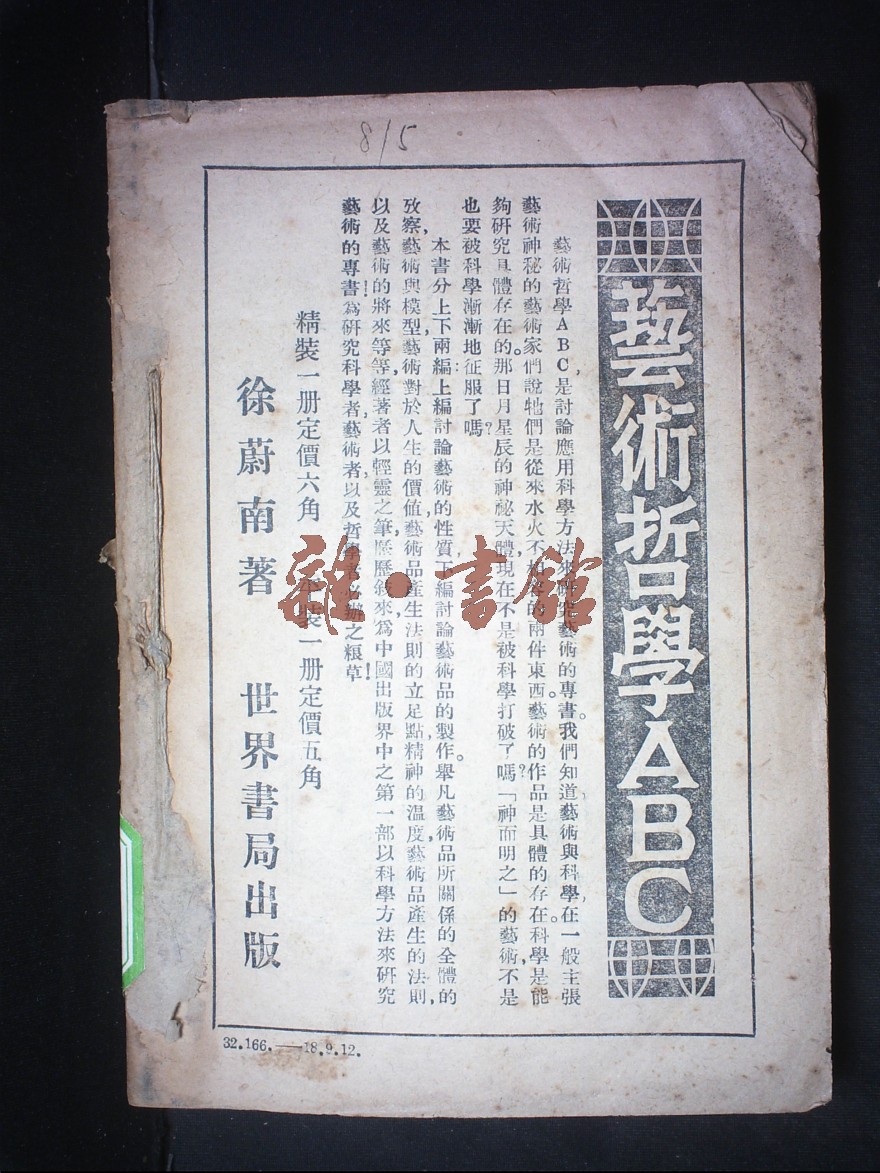 8/5
藝術哲學ABC
藝術哲學ABC，是討論應用科學方法來研究藝術的專書。我們知道，藝術與科學，在一般主張
藝術神秘的藝術家們說牠們是從來水火不相容的兩件東西。藝術的作品是具體的存在。科學是能
夠研究具體存在的。那日月星辰的神祕天體現在不是被科學打破了嗎？「神而明之」的藝術不是
也要被科學漸漸地征服了嗎？
本書分上下兩編：上編討論藝術的性質，下編討論藝術品的製作。舉凡藝術品所關係的全體的
攷察，藝術與模型，藝術對於人生的價值，藝術品產生法則的立足點，精神的溫度，藝術品產生的法則，
以及藝術的將來等等，經著者以輕靈之筆，歷歷敍來，爲中國出版界中之第一部以科學方法來研究
藝術的專書！爲研究科學者藝術者以及哲學者必辦之糧草！
精裝一册定價六角　平裝一册定價五角
徐蔚南著　世界書局出版
雜·書館
32.166.—18.9.12.